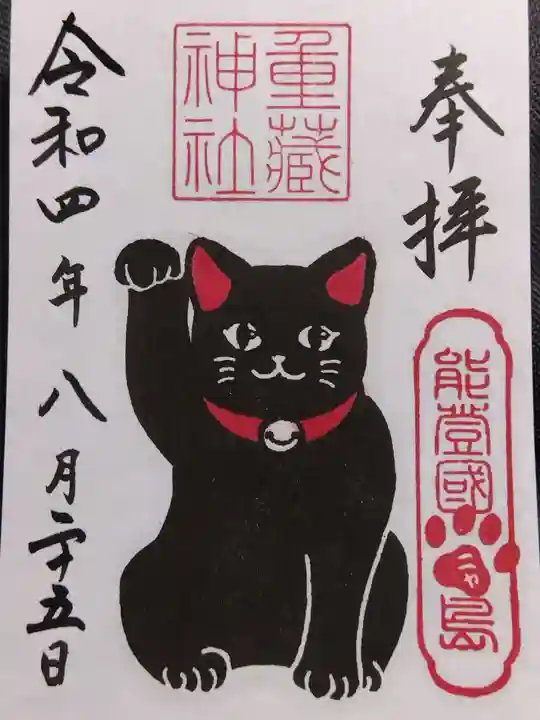 奉拝
重蔵
神社
能登國
令和四年八月二十五日